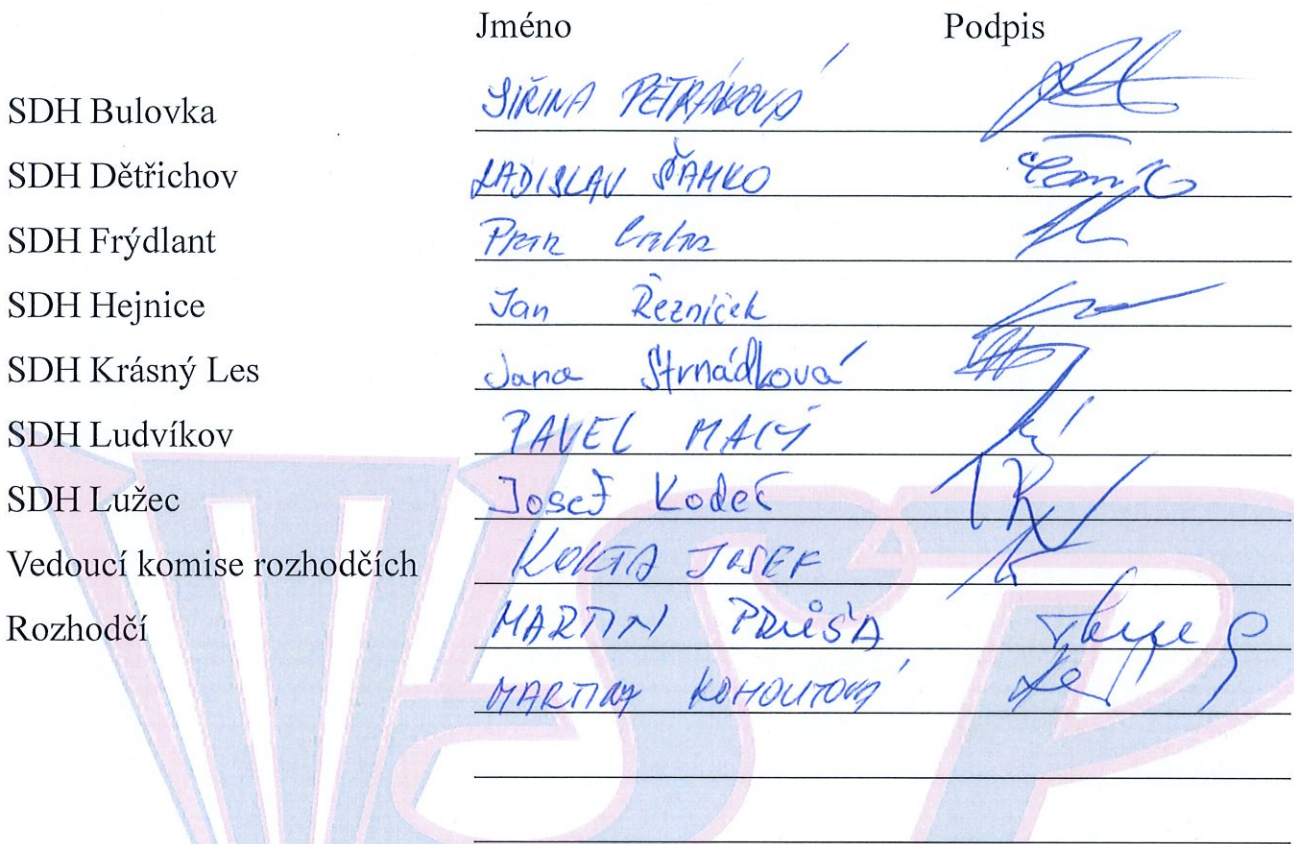 Jméno Podpis
SDH Bulovka JIŘINA PETRÁKOVÁ
SDH Dětřichov LADISLAV ŠAMKO
SDH Frýdlant
SDH Hejnice Jan Řezníček
SDH Krásný Les Jana Strnádková
SDH Ludvíkov PAVEL MALÝ
SDH Lužec Josef Kodeš
Vedoucí komise rozhodčích JOSEF
Rozhodčí MARTIN PRŮŠA
MARTINA KOHOUTOVÁ